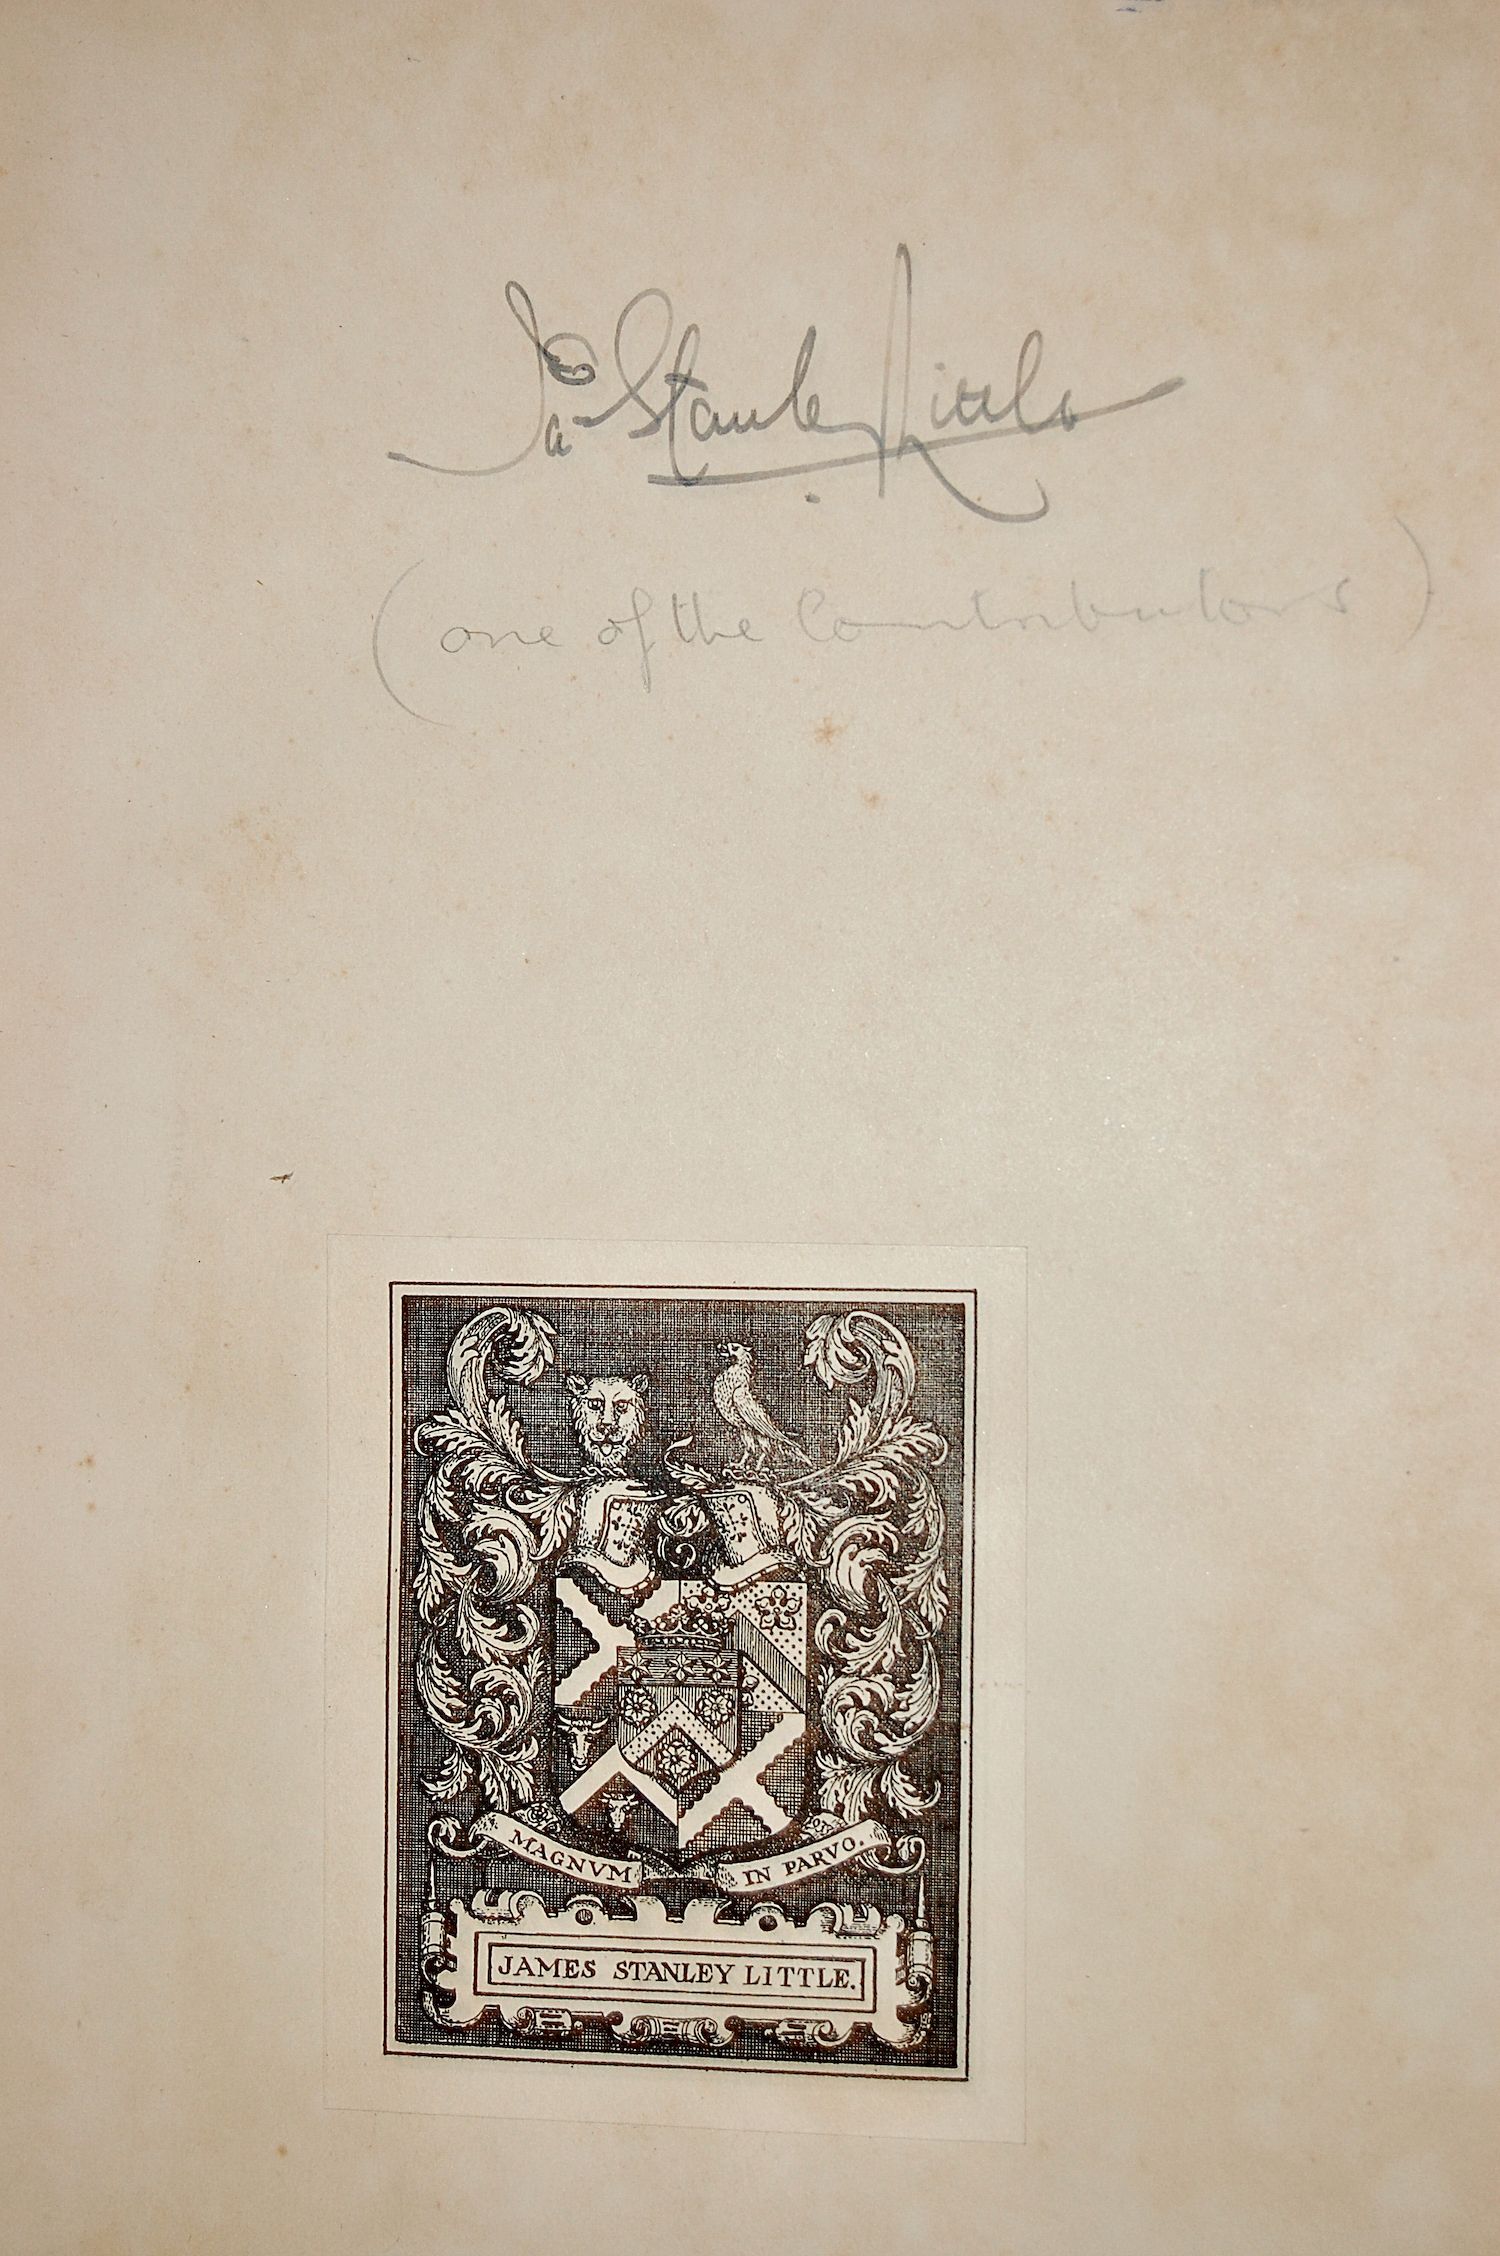 Jas Stanley Little
(one of the Contributors)
MAGNVM IN PARVO.
JAMES STANLEY LITTLE.